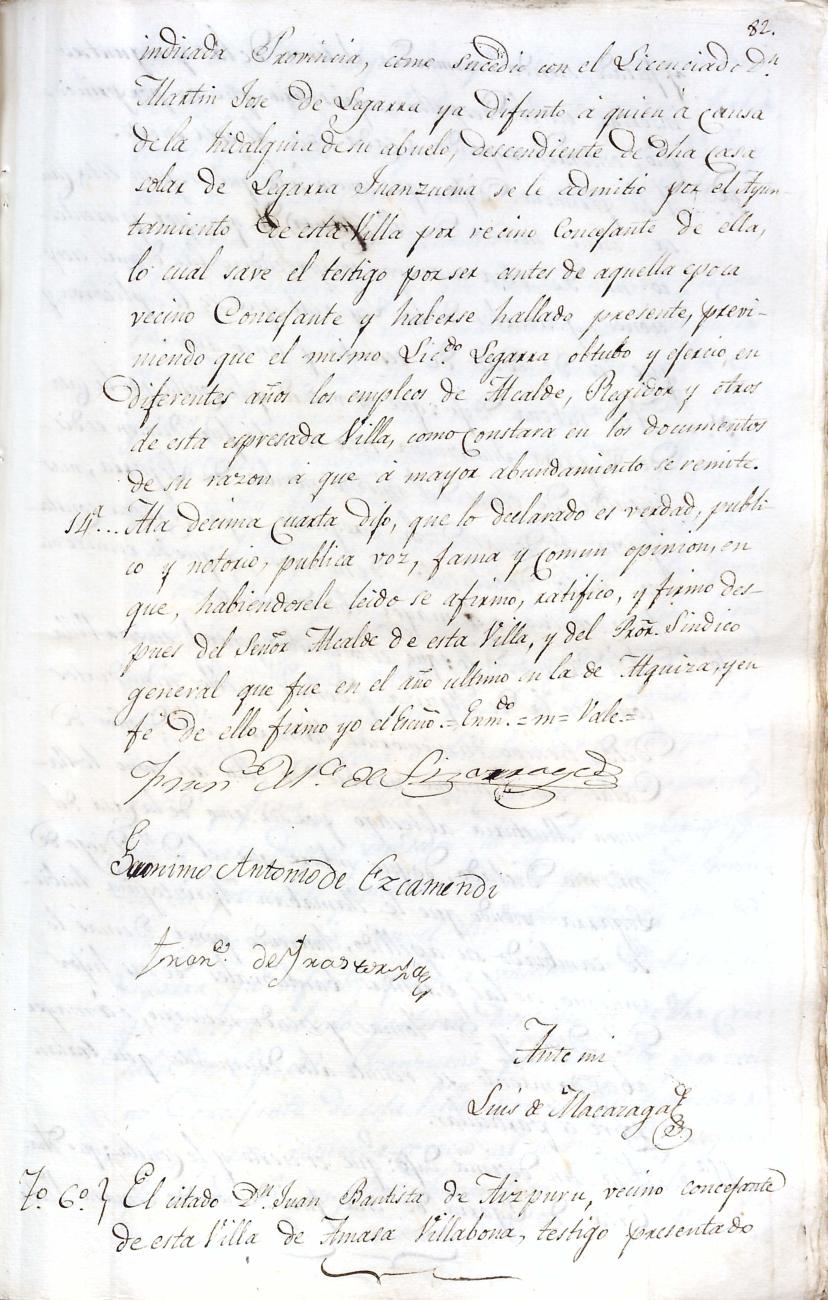 82.
indicada Provincia, como sucedió con el Licenciado Dn.
Martin Jose de Legarra ya difunto á quien á causa
de la hidalguia de su abuelo, descendiente de dha casa
solar de Legarra Juanzuena se le admitio por el Ayun-
tamiento de esta Villa por vecino Concejante de ella,
lo cual save el testigo por ser antes de aquella epoca
vecino Concejante y haberse hallado presente, previ-
niendo que el mismo Licdo. Legarra obtubo y ejercio, en
diferentes años los empleos de Alcalde, Regidor y otros
de esta espresada Villa, como Constara en los documentos
de su razon á que á mayor abundamiento se remite.
14a... A la decima cuarta dijo, que lo declarado es verdad, publi-
co y notorio, publica voz, fama y comun opinion, en
que, habiendosele leido se afirmo, ratifico, y firmo des-
pues del Señor Alcalde de esta Villa, y del Pror. Sindico
general que fue en el año ultimo en la de Alquiza, y en
fé de ello firmo yo el Esno.= Enmdo.= m= Vale.=
Franco. Ma. de Lizarraga
Geronimo Antonio de Ezcamendi
Franco. de Yrastorza
Ante mi
Luis de Macazaga
To. 6o. El citado Dn. Juan Bautista de Aizpuru, vecino concejante
de esta Villa de Amasa Villabona, testigo presentado